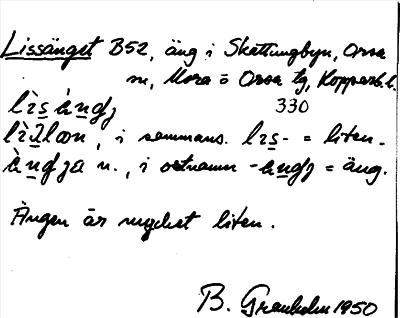 Lissänget B52, äng i Skattungbyn, Orsa
sn, Mora o Orsa tg, Kopparb. l.
330
i sammans. lɪs- = liten.
n., i ortnamn = äng.
Ängen är mycket liten.
B. Granholm 1950